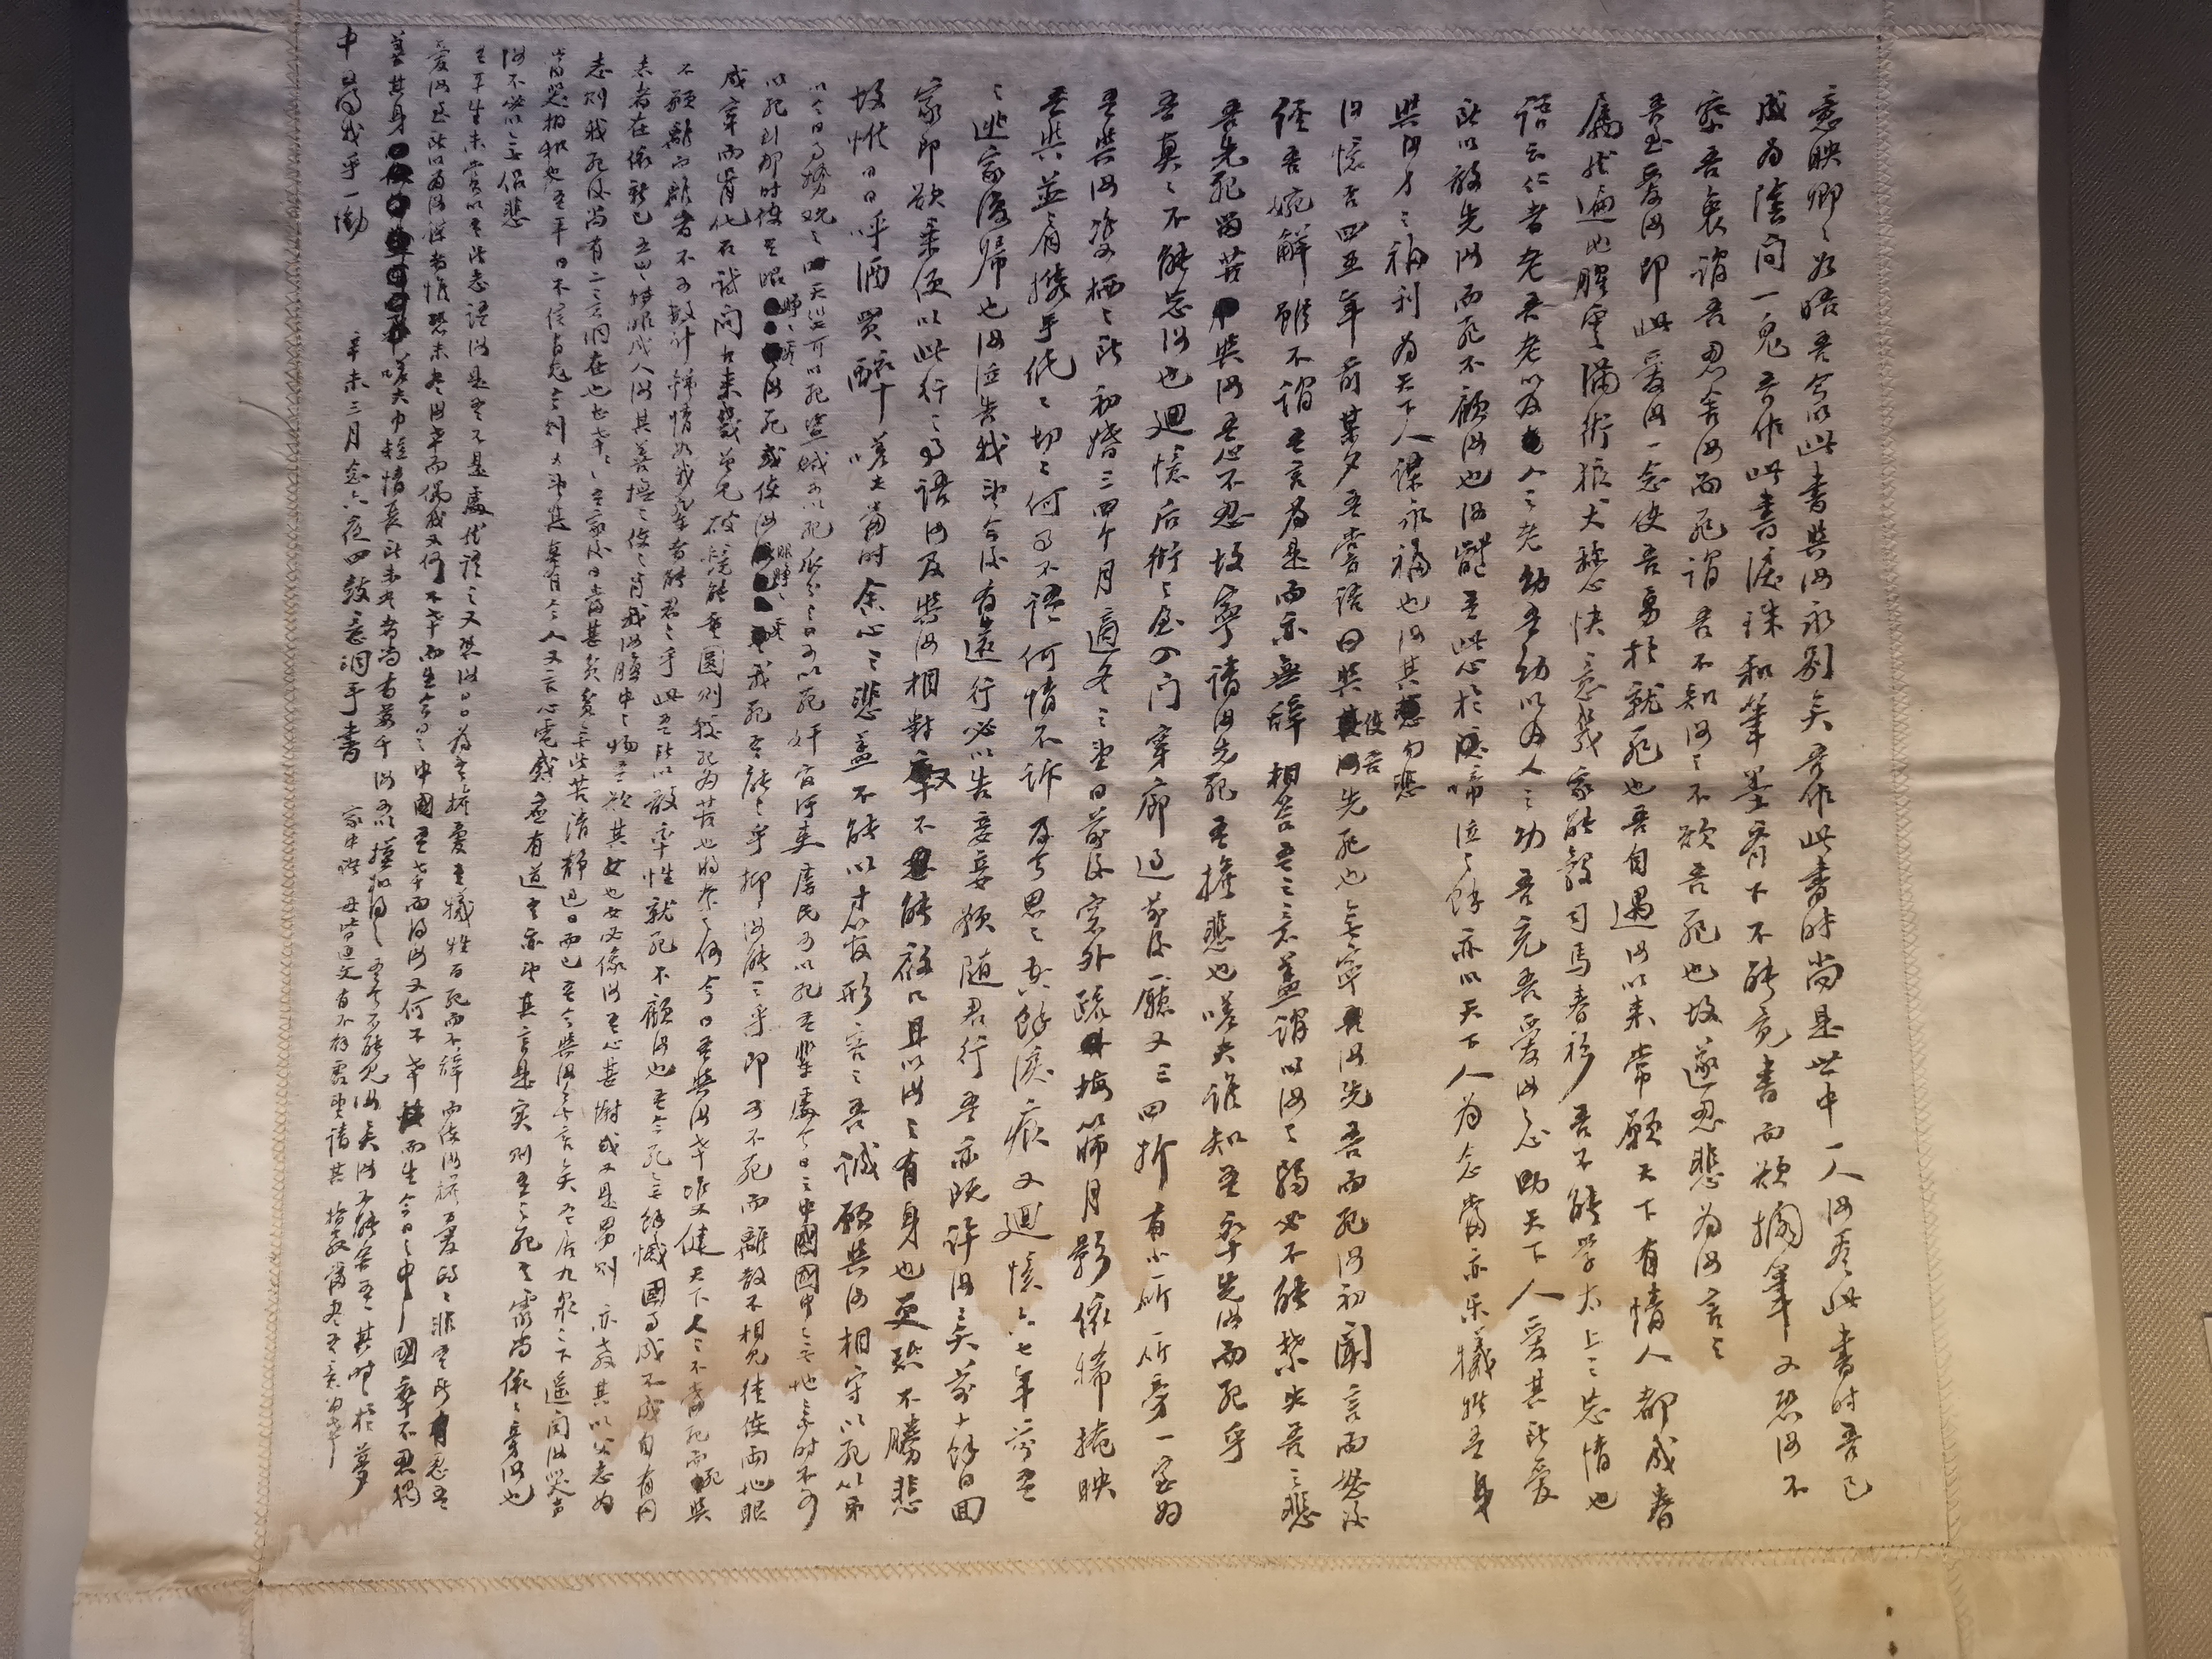 意映卿卿如晤吾今以此書與汝永別矣吾作此書時尚是世中一人汝看此書時吾已
成為陰間一鬼吾作此書淚珠和筆墨齊下不能竟書而欲擱筆又恐汝不
察吾衷謂吾忍舍汝而死謂吾不知汝之不欲吾死也故遂忍悲為汝言之
吾至愛汝即此愛汝一念使吾勇於就死也吾自遇汝以來常願天下有情人都成眷
屬然遍地腥雲滿街狼犬稱心快意幾家能彀司馬春衫吾不能學太上之忘情也
語云仁者老吾老以及人之老幼吾幼以及人之幼吾充吾愛汝之心助天下人愛其所愛
所以敢先汝而死不顧汝也汝體吾此心於啼泣之餘亦以天下人為念當亦乐犧牲吾身
與汝身之福利為天下人謀永福也汝其勿悲
汝憶否四五年前某夕吾嘗語曰與使吾先死也無寧汝先吾而死汝初聞言而怒後
經吾婉解雖不謂吾言為是而亦無辭相答吾之意蓋謂以汝之弱必不能禁失吾之悲
吾先死留苦與汝吾心不忍故寧請汝先死吾擔悲也嗟夫誰知吾卒先汝而死乎
吾真真不能忘汝也迴憶后街之屋入门穿廊過前後廳又三四折有小所所旁一室為
吾與汝雙栖之所初婚三四个月適冬之望日前後窗外疏梅篩月影依稀掩映
吾與並肩攜手低低切切何事不語何情不訴及今思之空餘淚痕又迴憶六七年前吾
之逃家復歸也汝泣告我望今後有遠行必以告妾妾願隨君行吾亦既許汝矣前十餘日回
家即欲乘便以此行之事語汝及與汝相對又不能啟口且以汝之有身也更恐不勝悲
故惟日日呼酒買醉嗟夫當時余心之悲蓋不能以寸管形容之吾誠願與汝相守以死第
以今日事勢觀之天災可以死盜賊可以死瓜分之日可以死奸官污吏虐民可以死吾輩處今日之中國國中無地無時不可
以死到那時使吾眼睜睜看汝死或使汝眼睜睜看我死吾能之乎抑汝能之乎即可不死而離散不相見徒使兩地眼
成穿而骨化石試問古來幾曾見破鏡能重圓則較死為苦也將奈之何今日吾與汝幸雙健天下人人不當死而死與
不願離而離者不可數計鍾情如我輩者能忍之乎此吾所以敢率性就死不顧汝也吾今死無餘憾國事成不成自有同
志者在依新已五歲轉眼成人汝其善撫之使之肖我汝腹中之物吾疑其女也女必像汝吾心甚慰或又是男則亦教其以父志為
志則我死後尚有二意洞在也甚幸甚幸吾家後日當甚貧貧無所苦清靜過日而已吾今與汝無言矣吾居九泉之下遙聞汝哭聲
當哭相和也吾平日不信有鬼今則又望其真有今人又言心電感應有道吾亦望其言是實則吾之死吾靈尚依依旁汝也
汝不必以無侶悲
吾平生未嘗以吾所志語汝是吾不是處然語之又恐汝日日為吾擔憂吾犧牲百死而不辭而使汝擔憂的的非吾所忍吾
愛汝至所以為汝謀者惟恐未盡汝幸而偶我又何不幸而生今日之中國吾幸而得汝又何不幸而生今日之中國卒不忍獨
善其身嗟夫巾短情長所未盡者尚有萬千汝可以模擬得之吾今不能見汝矣汝不能舍吾其時時於夢
中得我乎一慟
辛未三月念六夜四鼓意洞手書
家中諸母皆通文有不解處望請其指教當盡吾意為幸